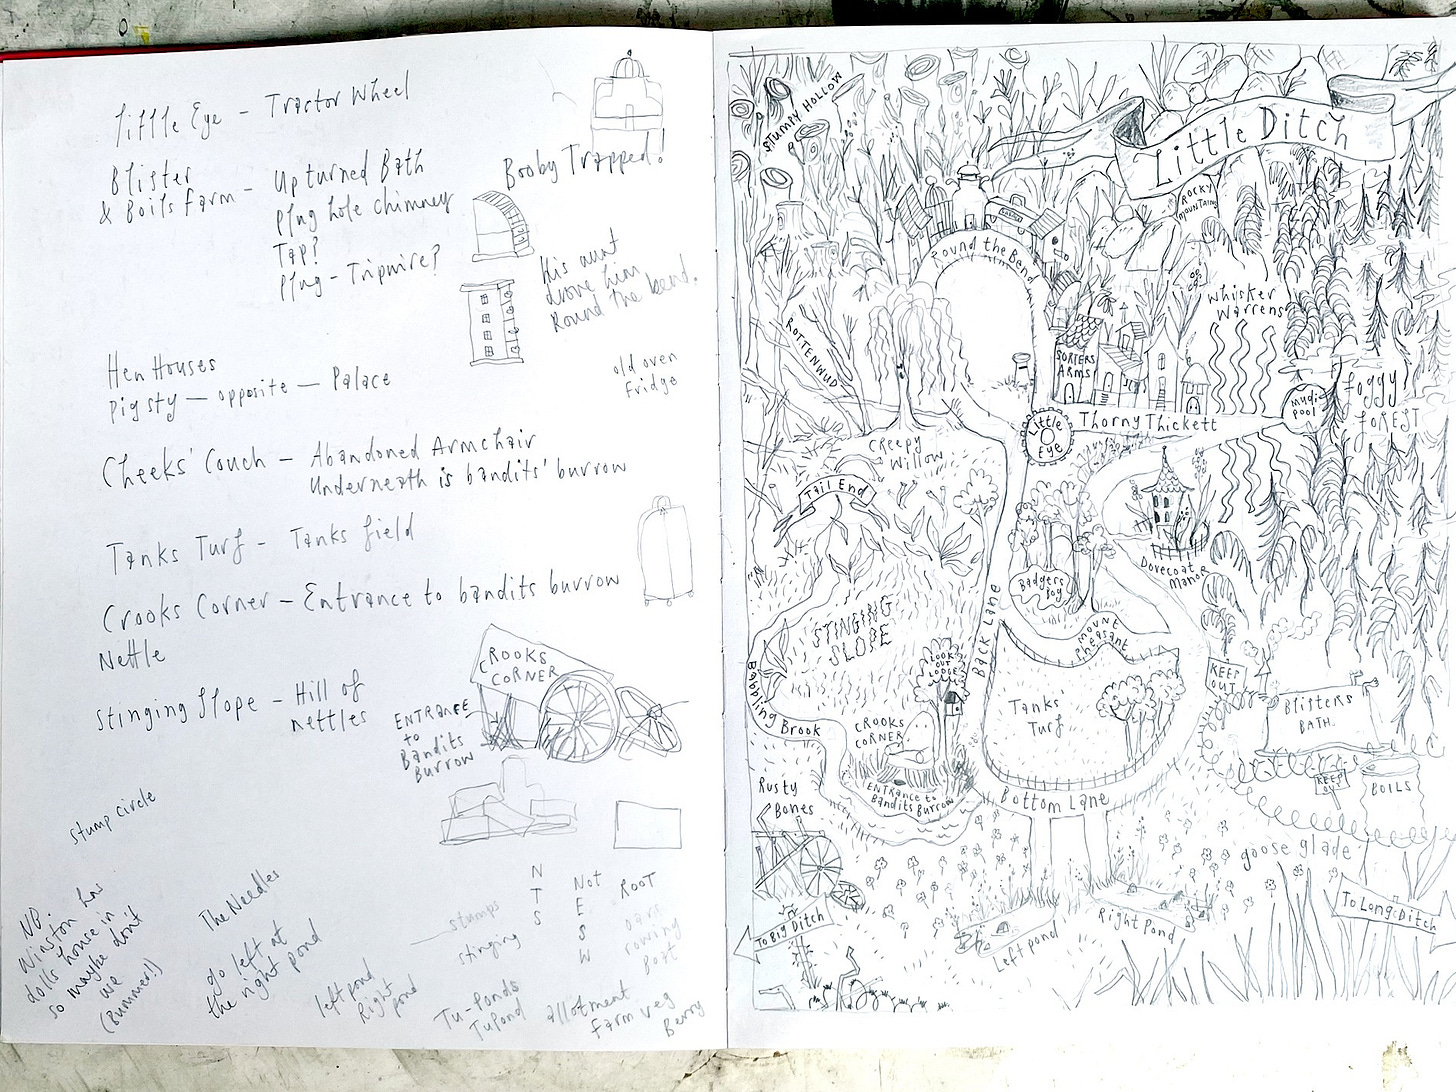 Little Eye - Tractor Wheel
Blister
& Boils Farm - Upturned Bath
Plug hole chimney
Tap?
Plug - Tripwire?
Booby Trapped!
His aunt
drove him
Round the bend.
Hen Houses
Pigsty - opposite - Palace
old oven
Fridge
Cheeks' Couch - Abandoned Armchair
Underneath is bandits' burrow
Tanks Turf - Tanks field
Crooks Corner - Entrance to bandits burrow
Nettle
Stinging Slope - Hill of
nettles
CROOKS
CORNER
ENTRANCE
to
Bandits
Burrow
stump circle
NB
Winston has
dolls house in
so maybe don't
we
(Bummer!)
The Needles
go left at
the right pond
left pond
Right pond
stumps
stinging
N
T
S
Not
E
S
W
ROOT
oars
rowing
Boat
Tu-Ponds
TuPond
allotment
Farm veg
Berry
STUMPY HOLLOW
Little Ditch
ROCKY
MOUNTAINS
Round the Bend
Whisker
Warrens
ROTTENWUD
SORTERS
ARMS
Mudi
pool
foggy
FOREST
Little
Eye
Thorny Thickett
Creepy
Willow
Tail End
Dovecoat
Manor
Badgers
Bog
STINGING
SLOPE
Back Lane
MOUNT
Pheasant
LOOK
OUT
LODGE
KEEP
OUT
Babbling Brook
Tanks
Turf
Blisters
BATH.
CROOKS
CORNER
ENTRANCE to
Bandits Burrow
Rusty
Bones
Bottom Lane
KEEP
OUT
BOILS
goose glade
To Big Ditch
Left pond
Right Pond
To Long Ditch